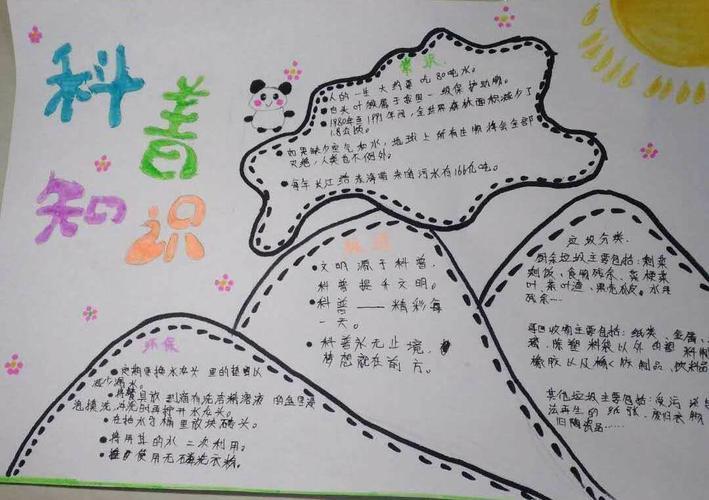 科普
知识
常识
•人的一生大约要吃80吨水。
•白头叶猴属于我国一级保护动物。
•1980年至1991年间,全世界森林面积减少了
1.8亿顷。
•如果缺少空气和水,地球上所有生物将会全部
灭绝,人类也不例外。
•每年长江给东海带来的污水有166亿吨。
•文明源于科普,
科普提升文明。
•科普——精彩每
一天。
•科普永无止境,
梦想就在前方。
环保
•定期更换水龙头里的垫圈以
减少漏水。
泡揽洗,冲洗时再拧开水龙头。
•在抽水马桶里放块砖头。
•将用其的水二次利用。
•使用无磷洗衣粉。
垃圾分类
厨余垃圾主要包括:剩菜
剩饭、食物残余、菜梗菜
叶、茶叶渣、果壳瓜皮、水果
残余……
可回收物主要包括:纸类、金属、
除塑料袋以外的塑料制
橡胶以及橡胶制品、饮料品
其他垃圾主要包括:受污
法再生的纸张、废旧衣物
旧陶瓷品……